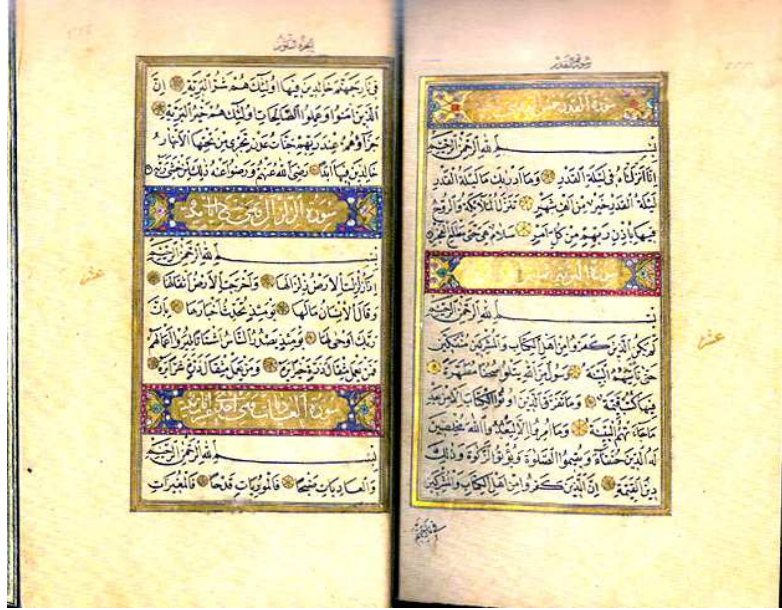 سورة القدر
سورة القدر خمس ايات
بسم لله الرحمن الرحيم
انا انزلناه فى ليلة القدر وما ادريك ما ليلة القدر
ليلة القدر خير من الف شهر تنزل الملائكة والروح
فيها باذن ربهم من كل امر سلام هى حتى مطلع الفجر
سورة البرية
بسم لله الرحمن الرحيم
لم يكن الذين كفروا من اهل الكتاب والمشركين منفكين
حتى تاتيهم البينة رسول من الله يتلوا صحفا مطهرة
فيها كتب قيمة وما تفرق الذين اوتوا الكتاب الا من بعد
ما جاءتهم البينة وما امروا الا ليعبدوا الله مخلصين
له الدين حنفاء ويقيموا الصلوة ويؤتوا الزكوة وذلك
دين القيمة ان الذين كفروا من اهل الكتاب والمشركين
فى نار جهنم
عشر
الجزء
فى نار جهنم خالدين فيها اولئك هم شر البرية ان
الذين امنوا وعملوا الصالحات اولئك هم خير البرية
جزاؤهم عند ربهم جنات عدن تجرى من تحتها الانهار
خالدين فيها ابدا رضى الله عنهم ورضوا عنه ذلك لمن خشى ربه
سورة الزلزال
بسم لله الرحمن الرحيم
اذا زلزلت الارض زلزالها واخرجت الارض اثقالها
وقال الانسان مالها يومئذ تحدث اخبارها بان
ربك اوحى لها يومئذ يصدر الناس اشتاتا ليروا اعمالهم
فمن يعمل مثقال ذرة خيرا يره ومن يعمل مثقال ذرة شرا يره
سورة العاديات
بسم لله الرحمن الرحيم
والعاديات ضبحا فالموريات قدحا فالمغيرات
عشر